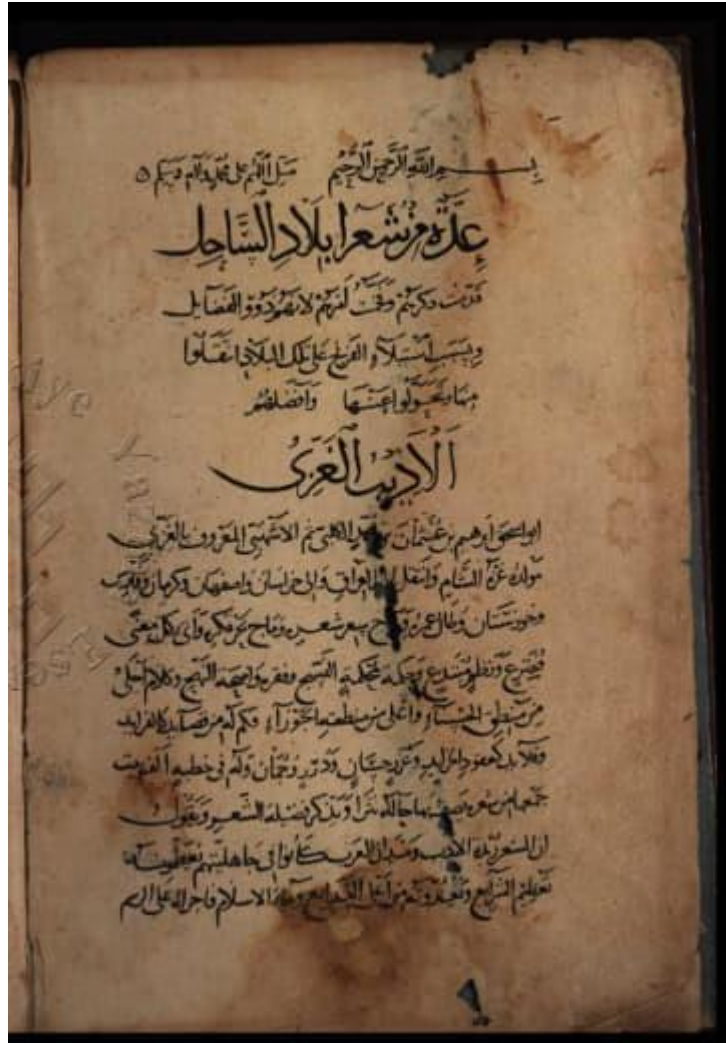 بسم الله الرحمن الرحيم صل اللهم على محمد وآله وسلم
عدة من شعرا بلاد الساحل
قدمت ذكرهم لانهم ذوو الفضايل
وبسبب استيلاء الفرنج على تلك البلاد انتقلوا
منها وتحولوا عنها وافضلهم
الاديب الغزى
ابو اسحق ابرهيم بن عثمان بن محمد الكلبى ثم الاشهبى المعروف بالغزى
مولده غزة الشام وانتقل الى العراق والى خراسان واصفهان وكرمان وفارس
وخوزستان وطال عمره وراج سعر شعره وماج بحر فكره واتى بكل معنى
مخترع ونظم مبتدع وحكمة محكمة النسج وفقرة واضحة النهج وكلام احلى
من منطق الحسناء واعلى من منطقة الجوزاء فكم له من قصايد كالفرايد
وقلايد كعقود الخرايد وغرر حسان ودرر وجمان وله فى خطبة الفت
جمعها من شعره يصف بها حاله نثرا ويذكر فضيلة الشعر ويقول
ان الشعر زبدة الادب وميدان العرب كانوا فى جاهليتهم يعظمونه
تعظيم الشرايع ويعدونه من اعلى الذرايع وجاء الاسلام فاجراه على الرسم